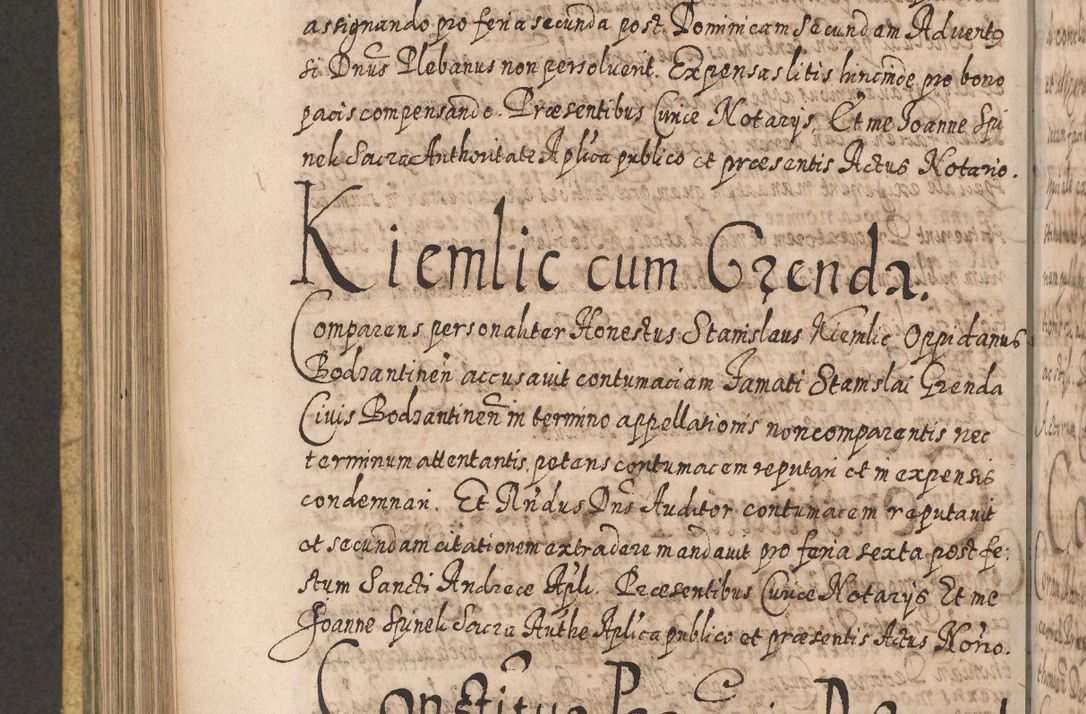 assignando pro feria secunda post Dominicam Secundam Adventꝰ
si Dnus Plebanus non persolverit. Expensas litis hincinde pro bono
pacis compensando. Præsentibus Curiæ Notarijs, Et me Joanne Spi
nek Sacra Authoritate Aplica publico et præsentis Actus Notario.
Kiemlic cum Grzenda.
Comparens personaliter Honestus Stanislaus Kiemlic Oppidanus
Bodzantinen accusavit contumaciam Famati Stanislai Grzenda
Civis Bodzantinen in termino appellationis non comparentis nec
terminum attentantis, petens contumacem reputari et in expensis
condemnari. Et Rndus Dns Auditor contumacem reputavit
et secundam citationem extradere mandavit pro feria sexta post fe:
stum Sancti Andreæ Apli. Præsentibus Curiæ Notarijs Et me
Joanne Spinek Sacra Authe Aplica publico et præsentis Actus Norio.